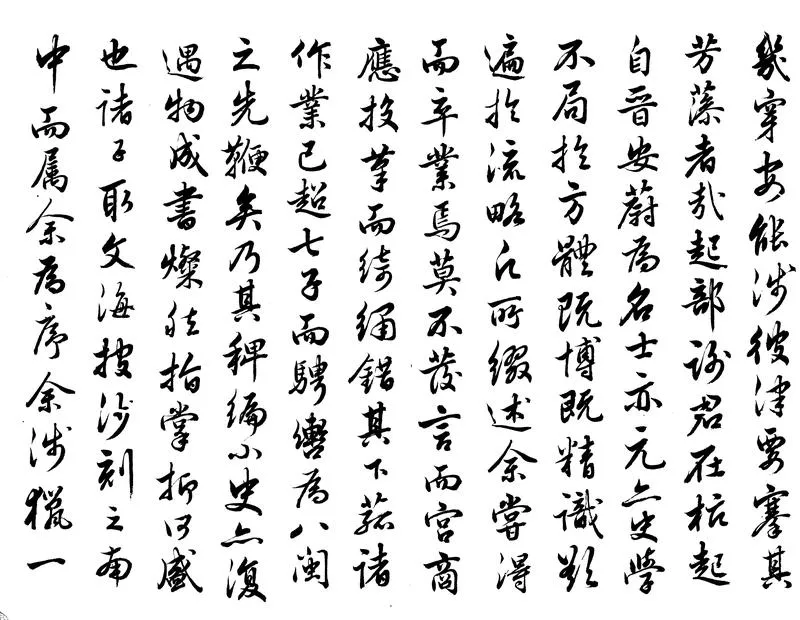 幾穿安能涉彼津要搴其
芳藻者哉起部謝君在杭起
自晋安蔚為名士亦元亦史學
不局於方體既博既精識
遍於流略凡所綴述余嘗得
而卒業焉莫不發言而宮商
應投筆而綺繡錯其下菰諸
作業已超七子而騁轡為八閩
之先鞭矣乃其稗編小史亦復
遇物成書燦然指掌抑何盛
也諸子取文海披沙刻之南
中而属余為序余涉獵一